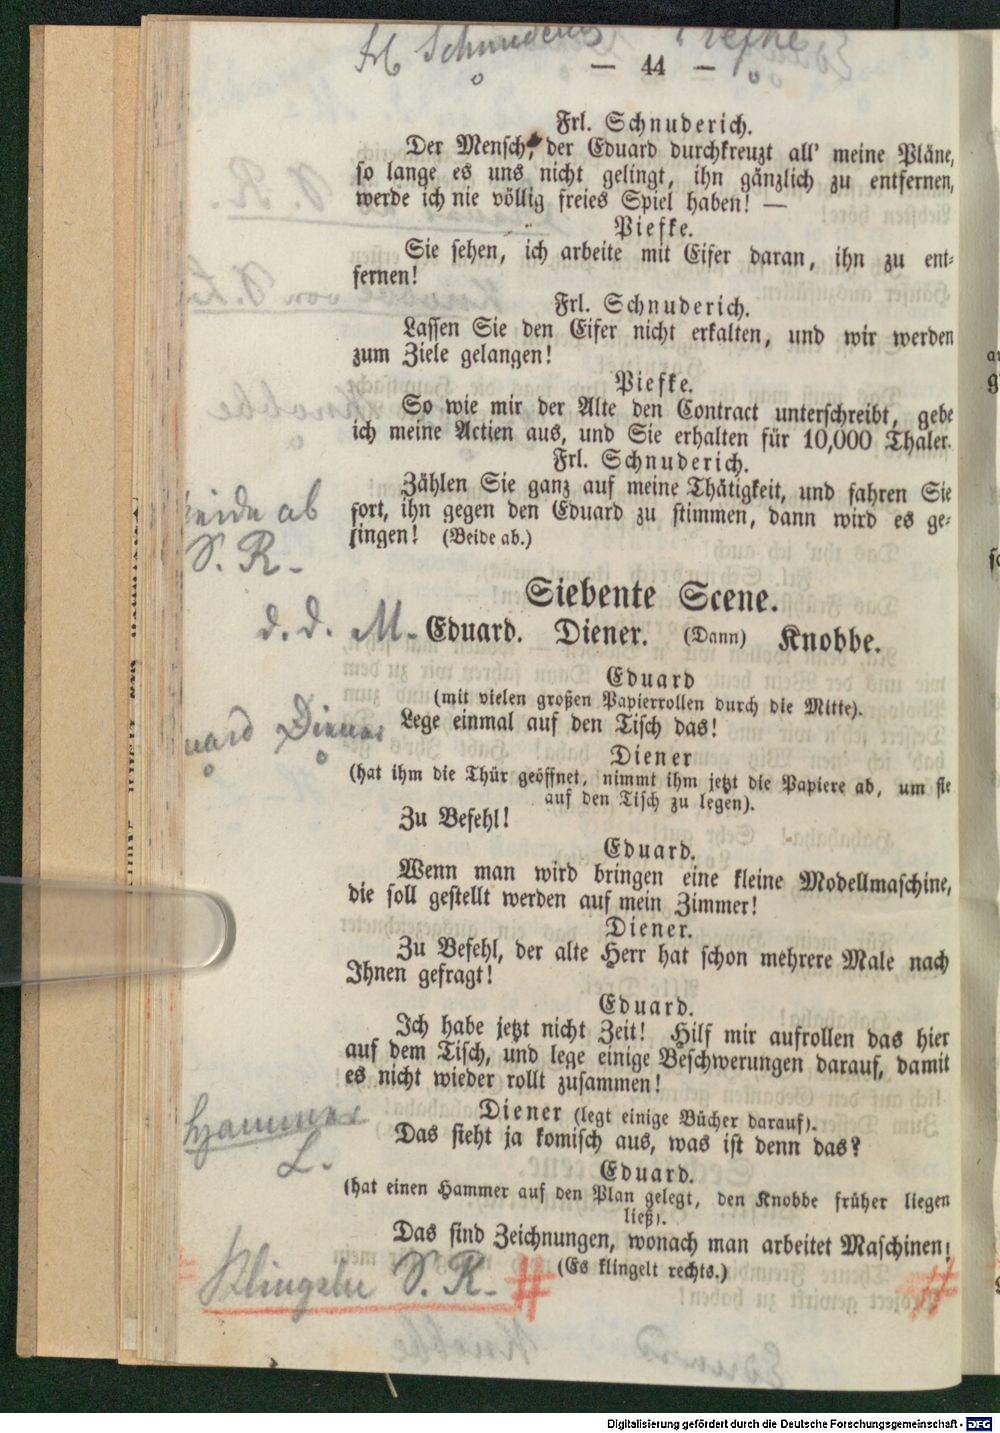 Frl Schnuderich Piefke
— 44 —
Frl. Schnuderich.
Der Mensch, der Eduard durchkreuzt all' meine Pläne,
so lange es uns nicht gelingt, ihn gänzlich zu entfernen,
werde ich nie völlig freies Spiel haben! —
Piefke.
Sie sehen, ich arbeite mit Eifer daran, ihn zu ent-
fernen!
Frl. Schnuderich.
Lassen Sie den Eifer nicht erkalten, und wir werden
zum Ziele gelangen!
Piefke.
So wie mir der Alte den Contract unterschreibt, gebe
ich meine Actien aus, und Sie erhalten für 10,000 Thaler.
Frl. Schnuderich.
Zählen Sie ganz auf meine Thätigkeit, und fahren Sie
fort, ihn gegen den Eduard zu stimmen, dann wird es ge-
lingen! (Beide ab.)
eide ab
S. R.
Siebente Scene.
d. d. M.
Eduard. Diener. (Dann) Knobbe.
Eduard
(mit vielen großen Papierrollen durch die Mitte).
Lege einmal auf den Tisch das!
uard Diener
Diener
(hat ihm die Thür geöffnet, nimmt ihm jetzt die Papiere ab, um sie
auf den Tisch zu legen).
Zu Befehl!
Eduard.
Wenn man wird bringen eine kleine Modellmaschine,
die soll gestellt werden auf mein Zimmer!
Diener.
Zu Befehl, der alte Herr hat schon mehrere Male nach
Ihnen gefragt!
Eduard.
Ich habe jetzt nicht Zeit! Hilf mir aufrollen das hier
auf dem Tisch, und lege einige Beschwerungen darauf, damit
es nicht wieder rollt zusammen!
Diener (legt einige Bücher darauf).
Das sieht ja komisch aus, was ist denn das?
Hammer
L.
Eduard.
(hat einen Hammer auf den Plan gelegt, den Knobbe früher liegen
ließ).
Das sind Zeichnungen, wonach man arbeitet Maschinen!
(Es klingelt rechts.)
Klingeln S. R. # #
Digitalisierung gefördert durch die Deutsche Forschungsgemeinschaft - DFG